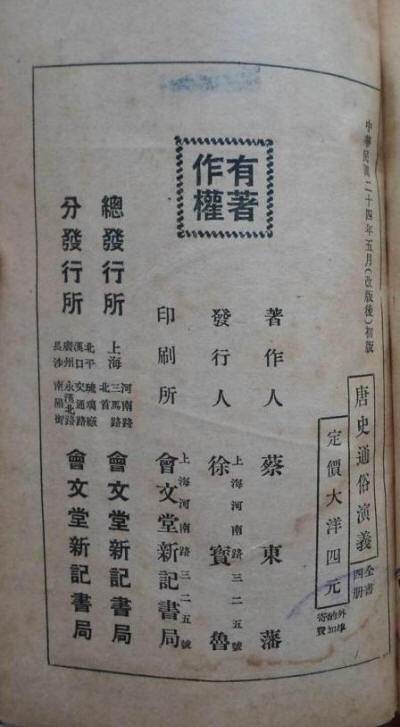 中華民國二十四年五月(改版後)初版
唐史通俗演義
全書四冊
定價大洋四元
外埠酌加寄費
有著作權
著作人 蔡東藩
發行人 徐寶魯
上海河南路三二五號
印刷所 會文堂新記書局
上海河南路三二五號
總發行所 上海 河南路三馬路北首 會文堂新記書局
分發行所 北平 琉璃廠 漢口 交通路 廣州 永漢北路 長沙 南陽街 會文堂新記書局